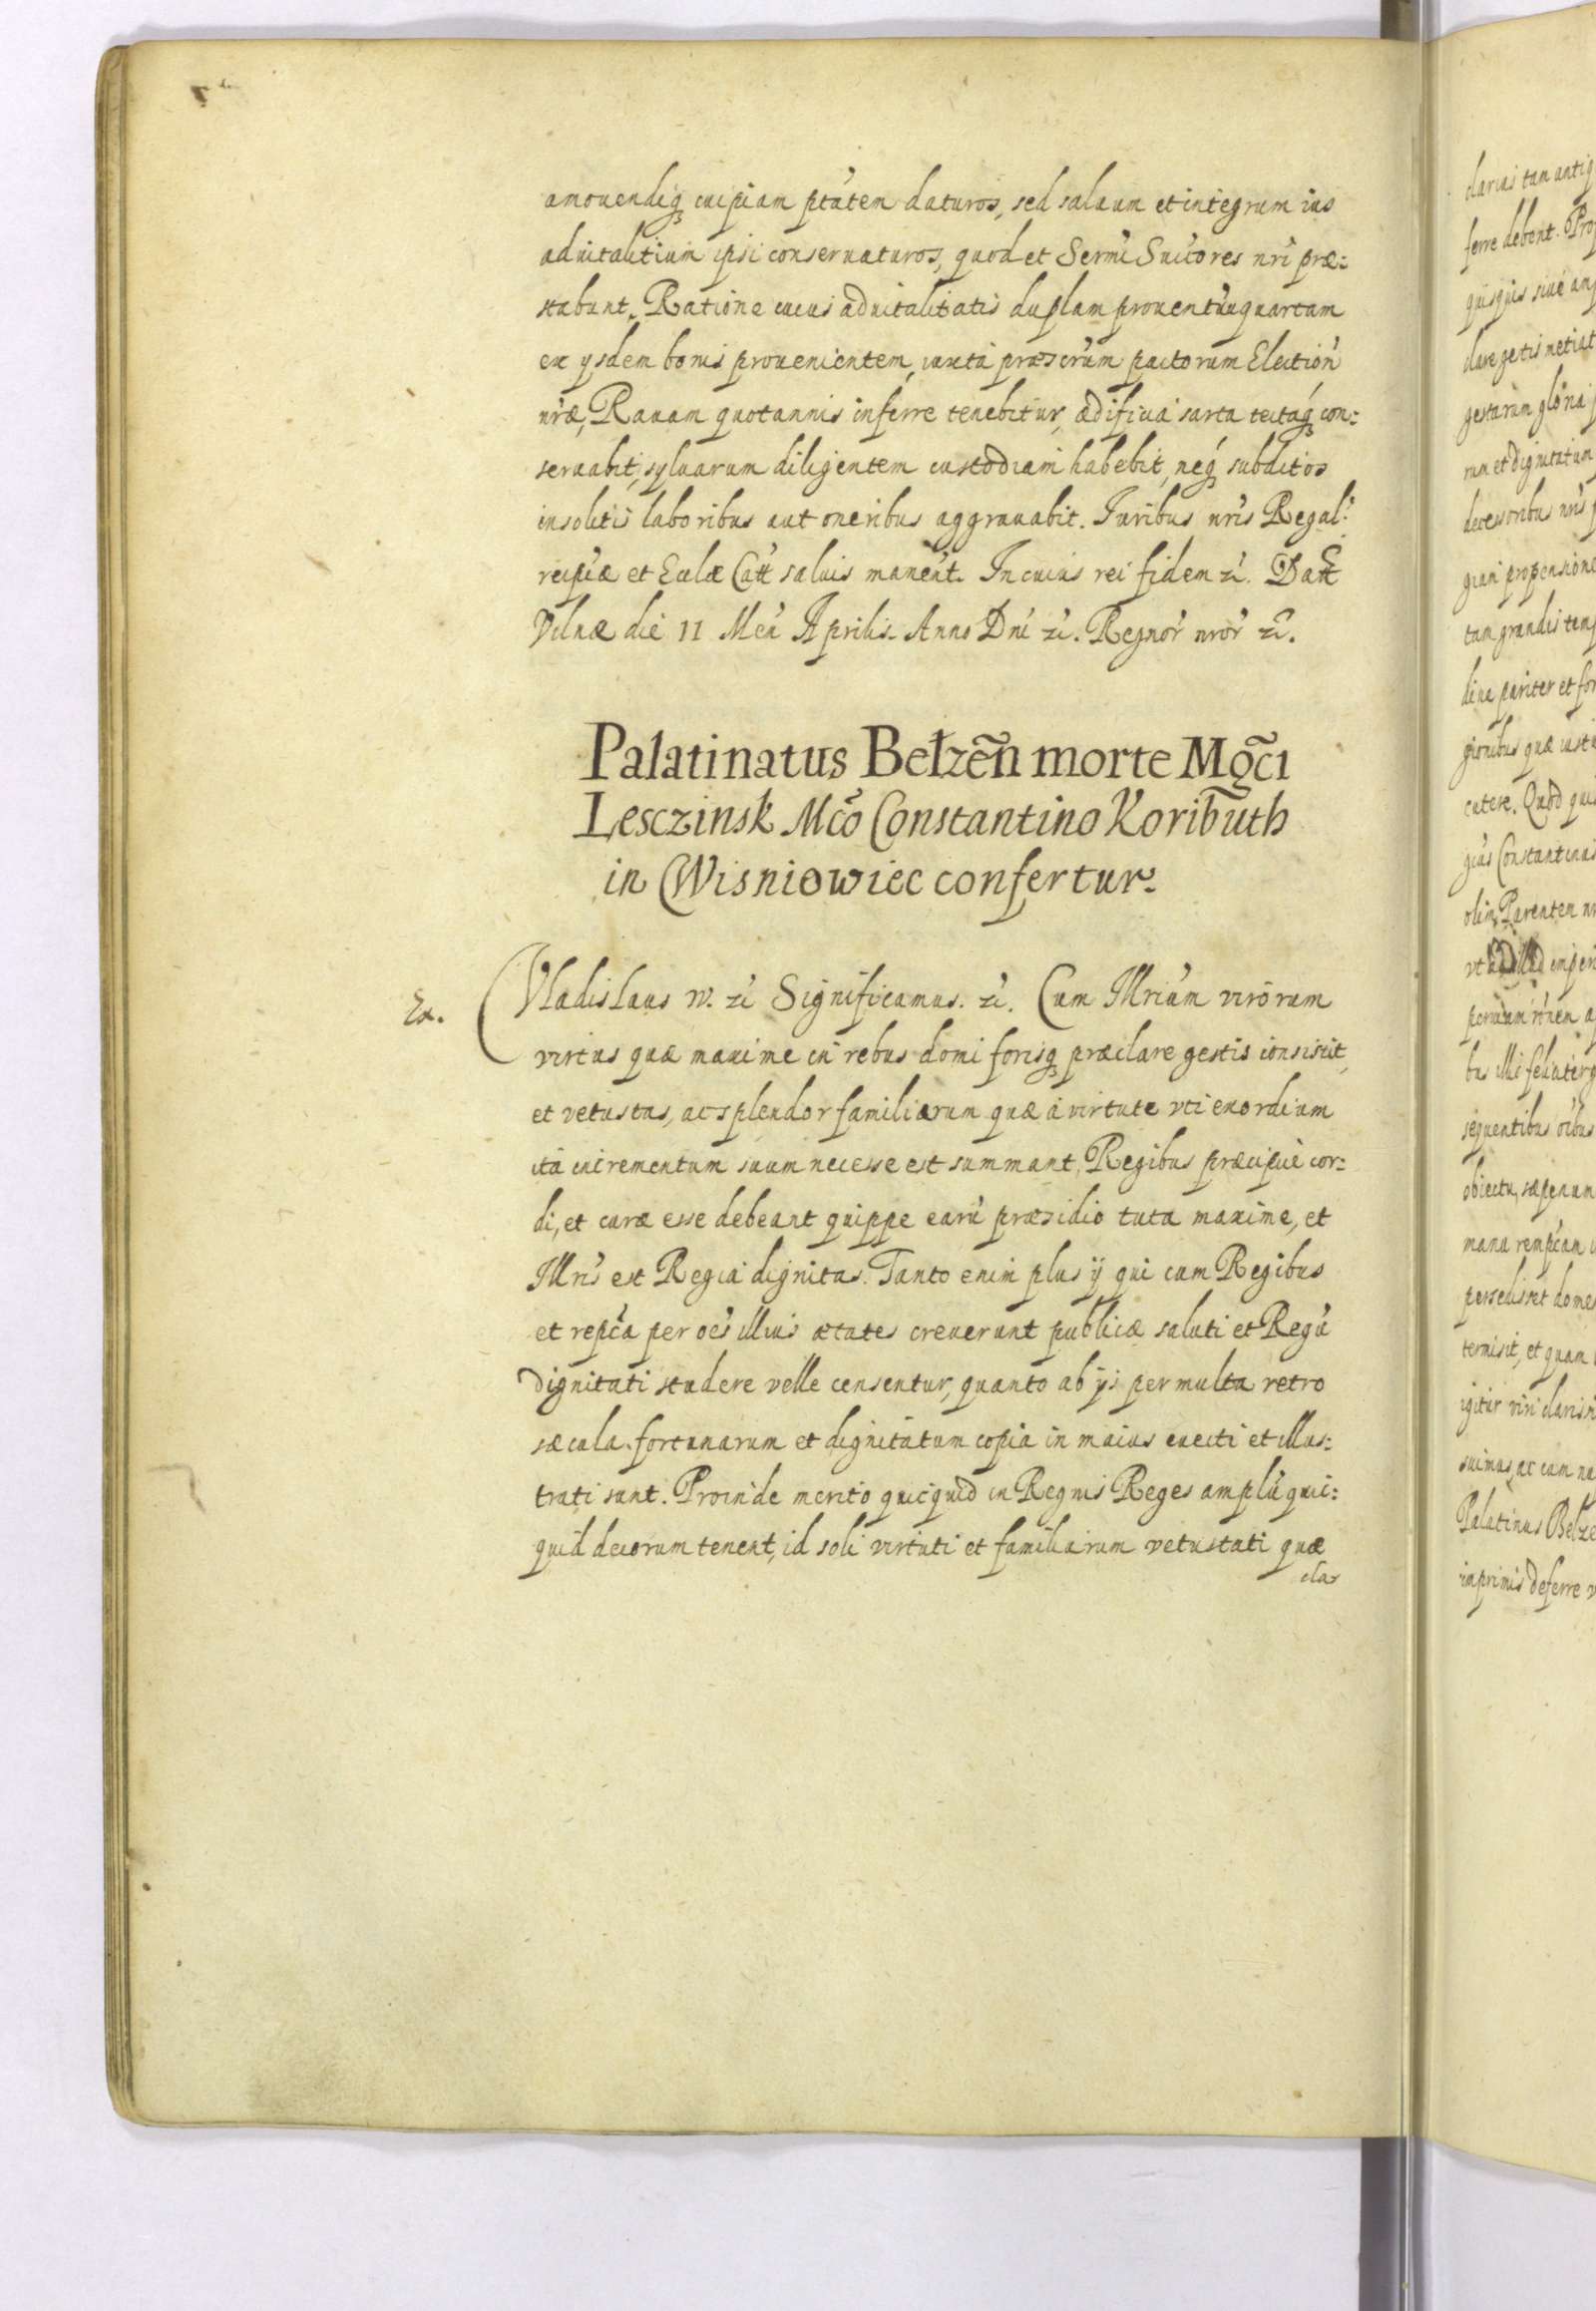 amouendiq; cuipiam ptãtem daturos, sed saluum et integrum ius
aduitalitium ipsi conseruaturos, quod et Sermi Succores nri præ:
stabunt. Ratione cuius aduitalitatis duplam prouentuuquartam
ex ysdem bonis prouenientem, iuxta præscrum pactorum Election
nræ, Rauam quotannis inferre tenebitur, ædificia sarta tectáq; con:
seruabit, syluarum diligentem custodiam habebit, neq; subditos
insolitis laboribus aut oneribus aggrauabit. Iuribus nris Regal:
reipcæ et Eclæ Catt saluis manent. In cuius rei fidem zc. Datt
Vilnæ die 11 Men Aprilis. Anno Dni zc. Regnor nror zc.
Palatinatus Bełzen̄ morte Mgci
Lesczinsk Mco Constantino Koributh
in Wisniowiec confertur.
Ex.
Vladislaus IV. zc Significamus. zc. Cum Illrium virorum
virtus quæ maxime in rebus domi forisq; præclare gestis consistit,
et vetustas, ac splendor familiarum quæ à virtute vti exordium
ita incrementum suum necesse est summant, Regibus præcipuè cor:
di, et curæ esse debeant quippe earu præsidio tuta maxime, et
Illris est Regia dignitas. Tanto enim plus ij qui cum Regibus
et repca per oes illius ætates creuerunt publicæ saluti et Regu
dignitati studere velle censentur, quanto ab ijs per multa retro
sæcula fortunarum et dignitatum copia in maius euecti et illus:
trati sunt. Proinde merito quicquid in Regnis Reges amplu quic:
quid decorum tenent, id soli virtuti et familiarum vetustati quæ
cla
clarius tam antiq
ferre debent. Pro
quisquis siue am
clare gestis metiat
gestarum gloria
rum et dignitatum
decessoribus nris
propensione
tam grandis
pariter et for
quæ
Quod
Constantinus
olim Parentem
sequentibus
obiectu, sæpenum
rempcam
dome
et quam
igitur viri clariss
ac cum
Palatinus Belze
inprimis deferre